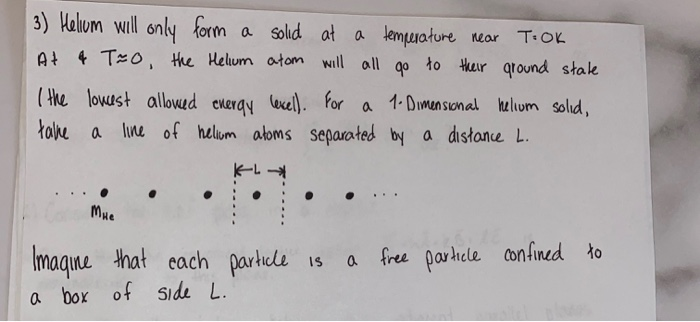 3) Helium will only form a solid at a temperature near T=0K
At T≈0, the Helium atom will all go to their ground state
(the lowest allowed energy level). For a 1-Dimensional helium solid,
take a line of helium atoms separated by a distance L.
L
... ...
mHe
Imagine that each particle is a free particle confined to
a box of side L.